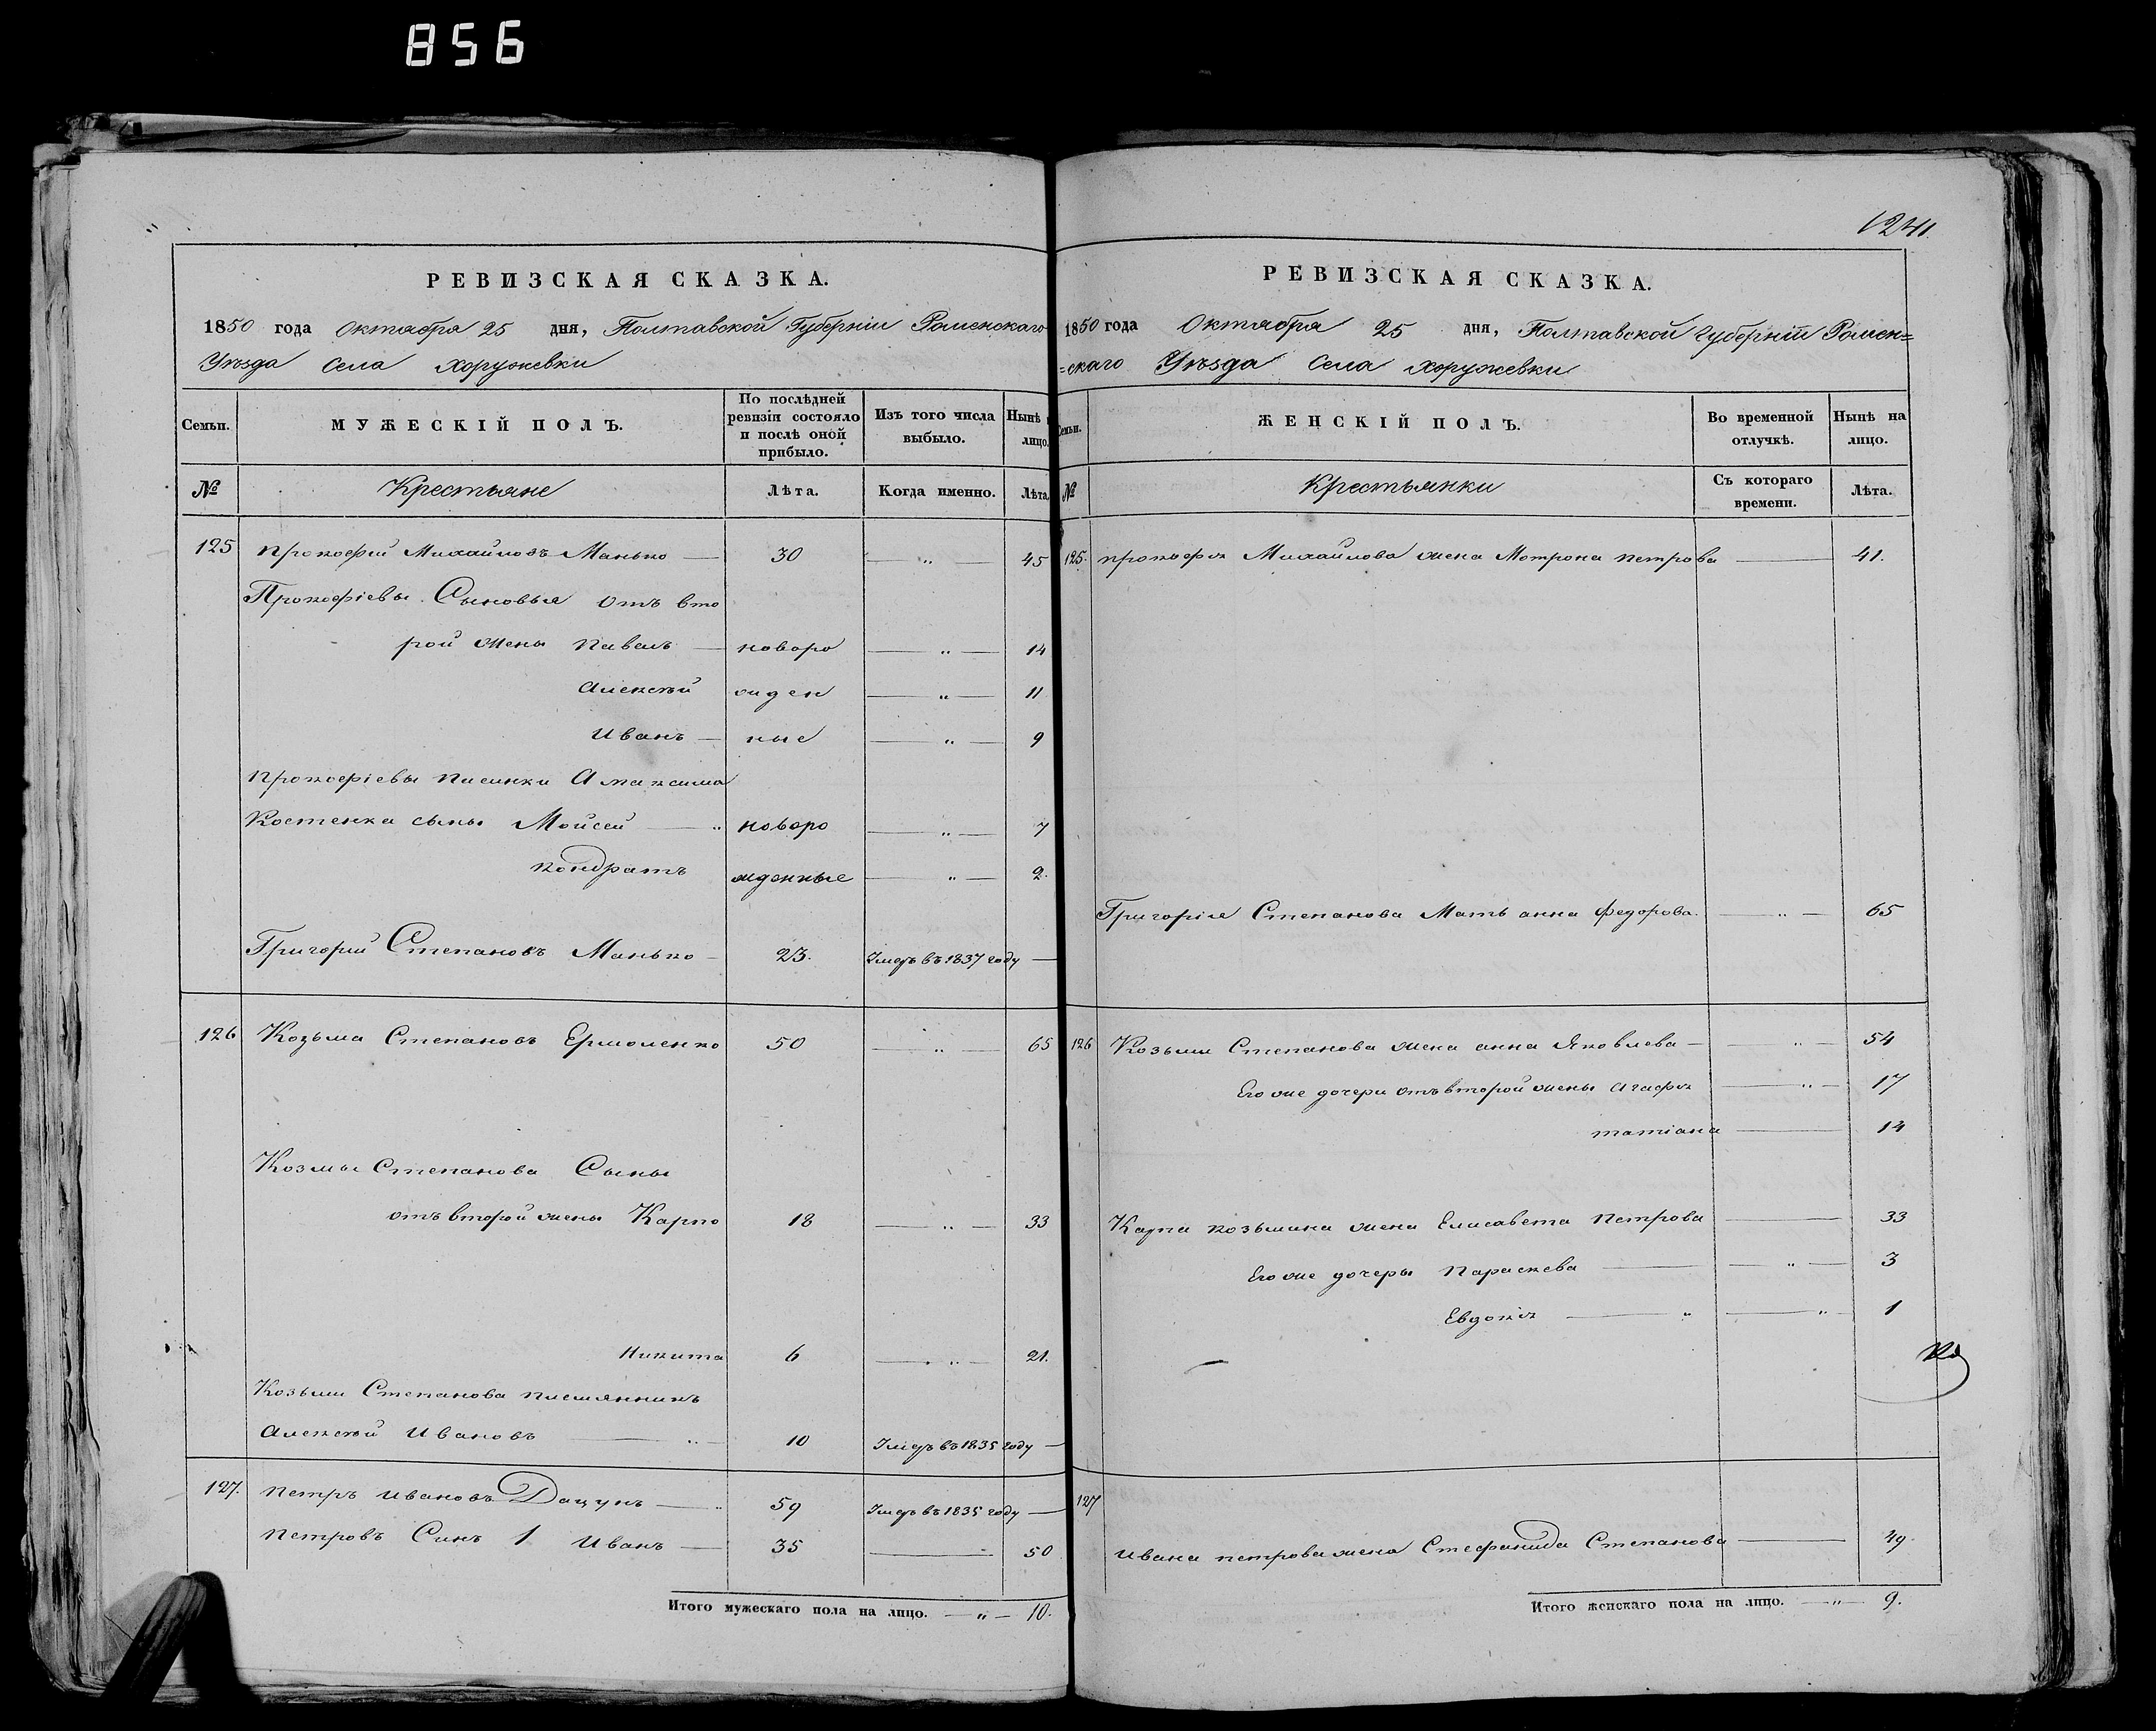 856
РЕВИЗСКАЯ СКАЗКА.
1850 года Октября 25 дня, Полтавской Губерніи Роменскаго
Уѣзда Села Хоружевки
Семьи. МУЖЕСКІЙ ПОЛЪ. По послѣдней ревизіи состояло и послѣ оной прибыло. Изъ того числа выбыло. Нынѣ лицо.
№ Крестьяне Лѣта. Когда именно. Лѣта
125 Прокофий Михайловъ Манько — 30 — „ — 45
Прокофіевы Сыновья отъ вто
рой жены Павелъ — новоро — „ — 14
Алексѣй жден — „ — 11
Иванъ — ные — „ — 9
Прокофіевы А Максима
Костенка сыны Мойсей — „ новоро — „ — 7
Кондратъ жденные — „ — 2.
Григорий Степановъ Манько — 23. Умеръ въ 1837 году —
126 Козьма Степановъ Ермоленко 50 — „ — 65
Козмы Степанова Сыны
отъ второй жены Карпо 18 — „ — 33
Никита 6 — „ — 21.
Козьми Степанова племянникъ
Алексѣй Ивановъ — „ — 10 Умеръ въ 1835 году —
127. Петръ Ивановъ Дацунъ — „ 59 Умеръ въ 1835 году —
Петровъ Синъ 1 Иванъ — 35 — 50
Итого мужескаго пола на лицо. — „ — 10.
1241.
РЕВИЗСКАЯ СКАЗКА.
1850 года Октября 25 дня, Полтавской Губерніи Ромен=
=скаго Уѣзда Села Хоружевки
Семьи. ЖЕНСКІЙ ПОЛЪ. Во временной отлучкѣ. Нынѣ на лицо.
№ Крестьянки Съ котораго времени. Лѣта.
125. Прокофія Михайлова жена Мотрона Петрова — 41.
Григорія Степанова Мать анна Федорова. — „ — 65
126 Козьми Степанова жена анна Яковлева — — „ — 54
Его же дочери отъ второй жены Агафія — „ — 17
татіана — 14
Карпа Козьмина жена Елисавета Петрова — 33
Его же дочеры Параскева — — „ — 3
Евдокія — „ — „ — 1
127
Ивана Петрова жена Стефанида Степанова — 49.
Итого женскаго пола на лицо. — „ — 9.